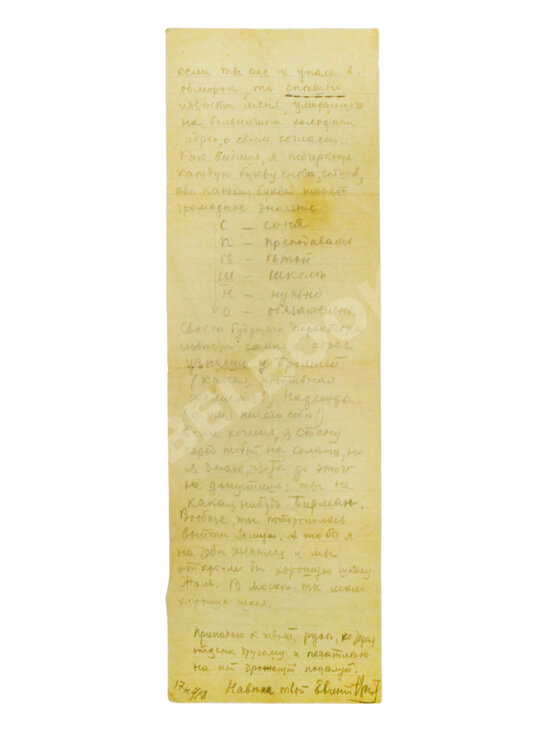 если ты ещё не упала в
обморок, то спѣшно
извести меня, умирающего
на больничном холодном
одре, о своем согласии.
Как видишь, я подчеркнул
каждую букву слова,
ибо каждая буква имеет
громадное значение.
С — Соня
П — преподавания
Ѣ —
Ш — школѣ
Н — нужно
О — обязательно
Своего будущего директора
извести сама, а адрес
у
(какая противная
) Надежда.
ничего себе!)
Если хочешь, я стану
перед тобой на колени, но
я знаю, что ты до этого
не допустишь: ты не
какая нибудь
Вообще, ты поторопилась
выйти замуж. А то бы я
на тебе женился и мы
открыли бы хорошую школу
Жаль. В Москве так мало
хороших школ.
Припадаю к твоей руке, которая
отдана другому и печатлею
на ней дрожащий поцелуй.
Навеки твой Евгений
17
BELBOOK